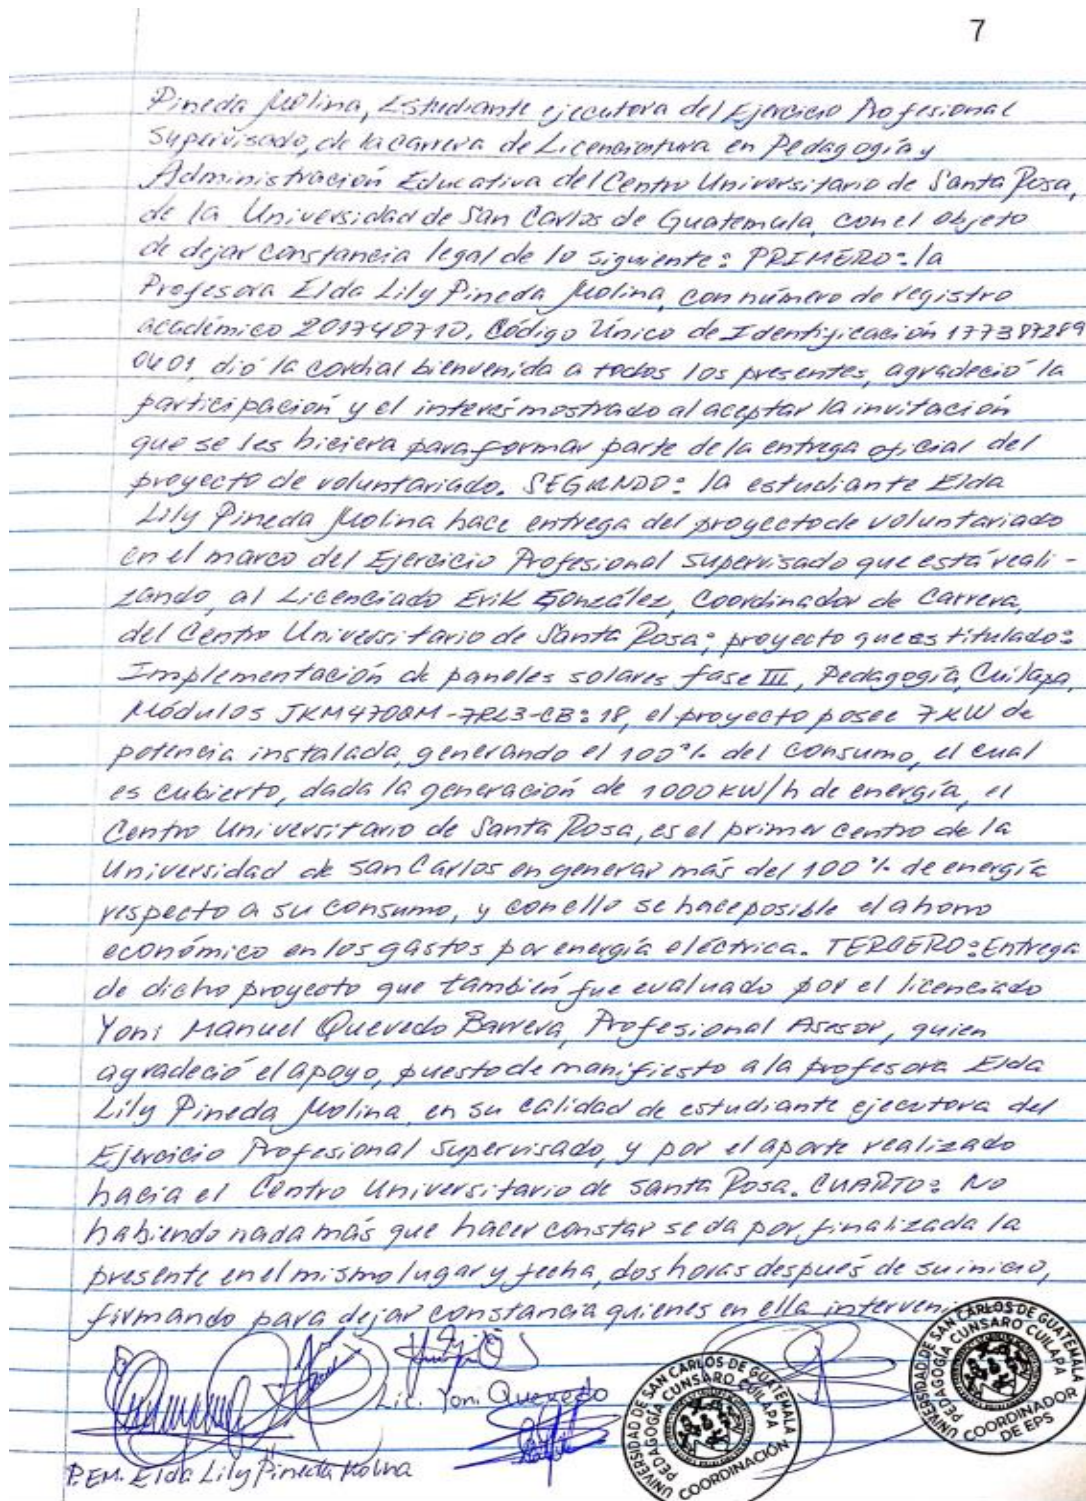 7
Pineda Molina, Estudiante ejecutora del Ejercicio Profesional
Supervisado, de la carrera de Licenciatura en Pedagogía y
Administración Educativa del Centro Universitario de Santa Rosa,
de la Universidad de San Carlos de Guatemala, con el objeto
de dejar constancia legal de lo siguiente: PRIMERO: la
Profesora Elda Lily Pineda Molina, con número de registro
académico 201740710, Código Único de Identificación 177387289
0401, dió la cordial bienvenida a todos los presentes, agradeció la
participación y el interés mostrado al aceptar la invitación
que se les hiciera para formar parte de la entrega oficial del
proyecto de voluntariado. SEGUNDO: la estudiante Elda
Lily Pineda Molina hace entrega del proyecto de voluntariado
en el marco del Ejercicio Profesional Supervisado que está reali-
zando, al Licenciado Erik González, Coordinador de Carrera,
del Centro Universitario de Santa Rosa; proyecto que es titulado:
Implementación de paneles solares fase III, Pedagogía, Cuilapa,
Módulos JKM470QM-7RL3-CB: 18, el proyecto posee 7KW de
potencia instalada, generando el 100% del consumo, el cual
es cubierto, dada la generación de 1000 KW/h de energía, el
Centro Universitario de Santa Rosa, es el primer centro de la
Universidad de San Carlos en generar más del 100% de energía
respecto a su consumo, y con ello se hace posible el ahorro
económico en los gastos por energía eléctrica. TERCERO: Entrega
de dicho proyecto que también fue evaluado por el licenciado
Yoni Manuel Quevedo Barrera, Profesional Asesor, quien
agradeció el apoyo, puesto de manifiesto a la profesora Elda
Lily Pineda Molina, en su calidad de estudiante ejecutora del
Ejercicio Profesional Supervisado, y por el aporte realizado
hacia el Centro Universitario de Santa Rosa. CUARTO: No
habiendo nada más que hacer constar se da por finalizada la
presente en el mismo lugar y fecha, dos horas después de su inicio,
firmando para dejar constancia quienes en ella
Lic. Yoni Quevedo
P.E.M. Elda Lily Pineda Molina
UNIVERSIDAD DE SAN CARLOS DE GUATEMALA
PEDAGOGÍA CUNSARO CUILAPA
COORDINACIÓN
UNIVERSIDAD DE SAN CARLOS DE GUATEMALA
PEDAGOGÍA CUNSARO CUILAPA
COORDINADOR
DE EPS